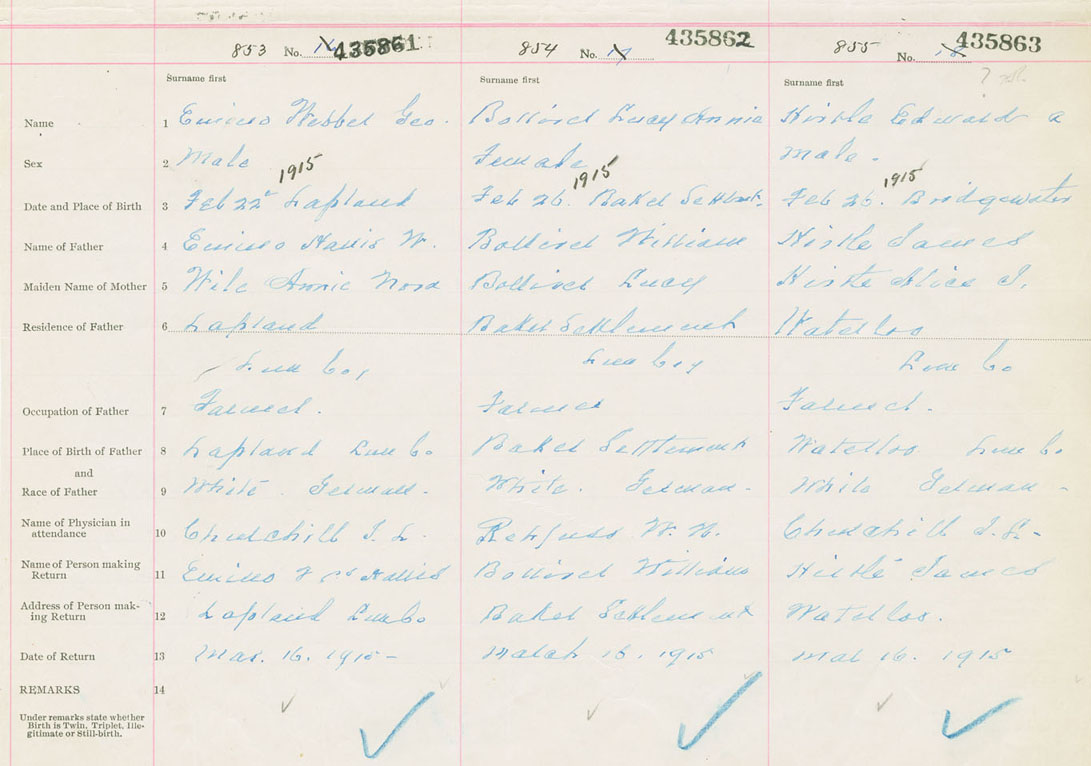 853 No. 16 435861
854 No. 17 435862
855 No. 18 435863
Surname first Surname first Surname first
Name 1 Webber Geo. Bollivet Lucy Annie Hirtle Edward A
Sex 2 Male Female Male.
1915 1915 1915
Date and Place of Birth 3 Feb 22 Lapland Feb 26. Baker Feb 26. Bridgewater
Name of Father 4 W. William Hirtle James
Maiden Name of Mother 5 Wile Annie Nora Lucy Hirtle Alice J.
Residence of Father 6 Lapland Baker Settlement Waterloo
Lun Co, Lun Co, Lun Co
Occupation of Father 7 Farmer. Farmer Farmer.
Place of Birth of Father 8 Lapland Lun Co. Baker Settlement Waterloo Lun Co.
and
Race of Father 9 White German. White. German. White German -
Name of Physician in
attendance 10 Churchill J. L. Rehfuss W. N. Churchill J. L.
Name of Person making
Return 11 William Hirtle James
Address of Person mak-
ing Return 12 Lapland Lun Co. Baker Settlement Waterloo.
Date of Return 13 Mar. 16. 1915 - March 16. 1915 Mar 16. 1915
REMARKS 14
Under remarks state whether
Birth is Twin, Triplet, Ille-
gitimate or Still-birth.